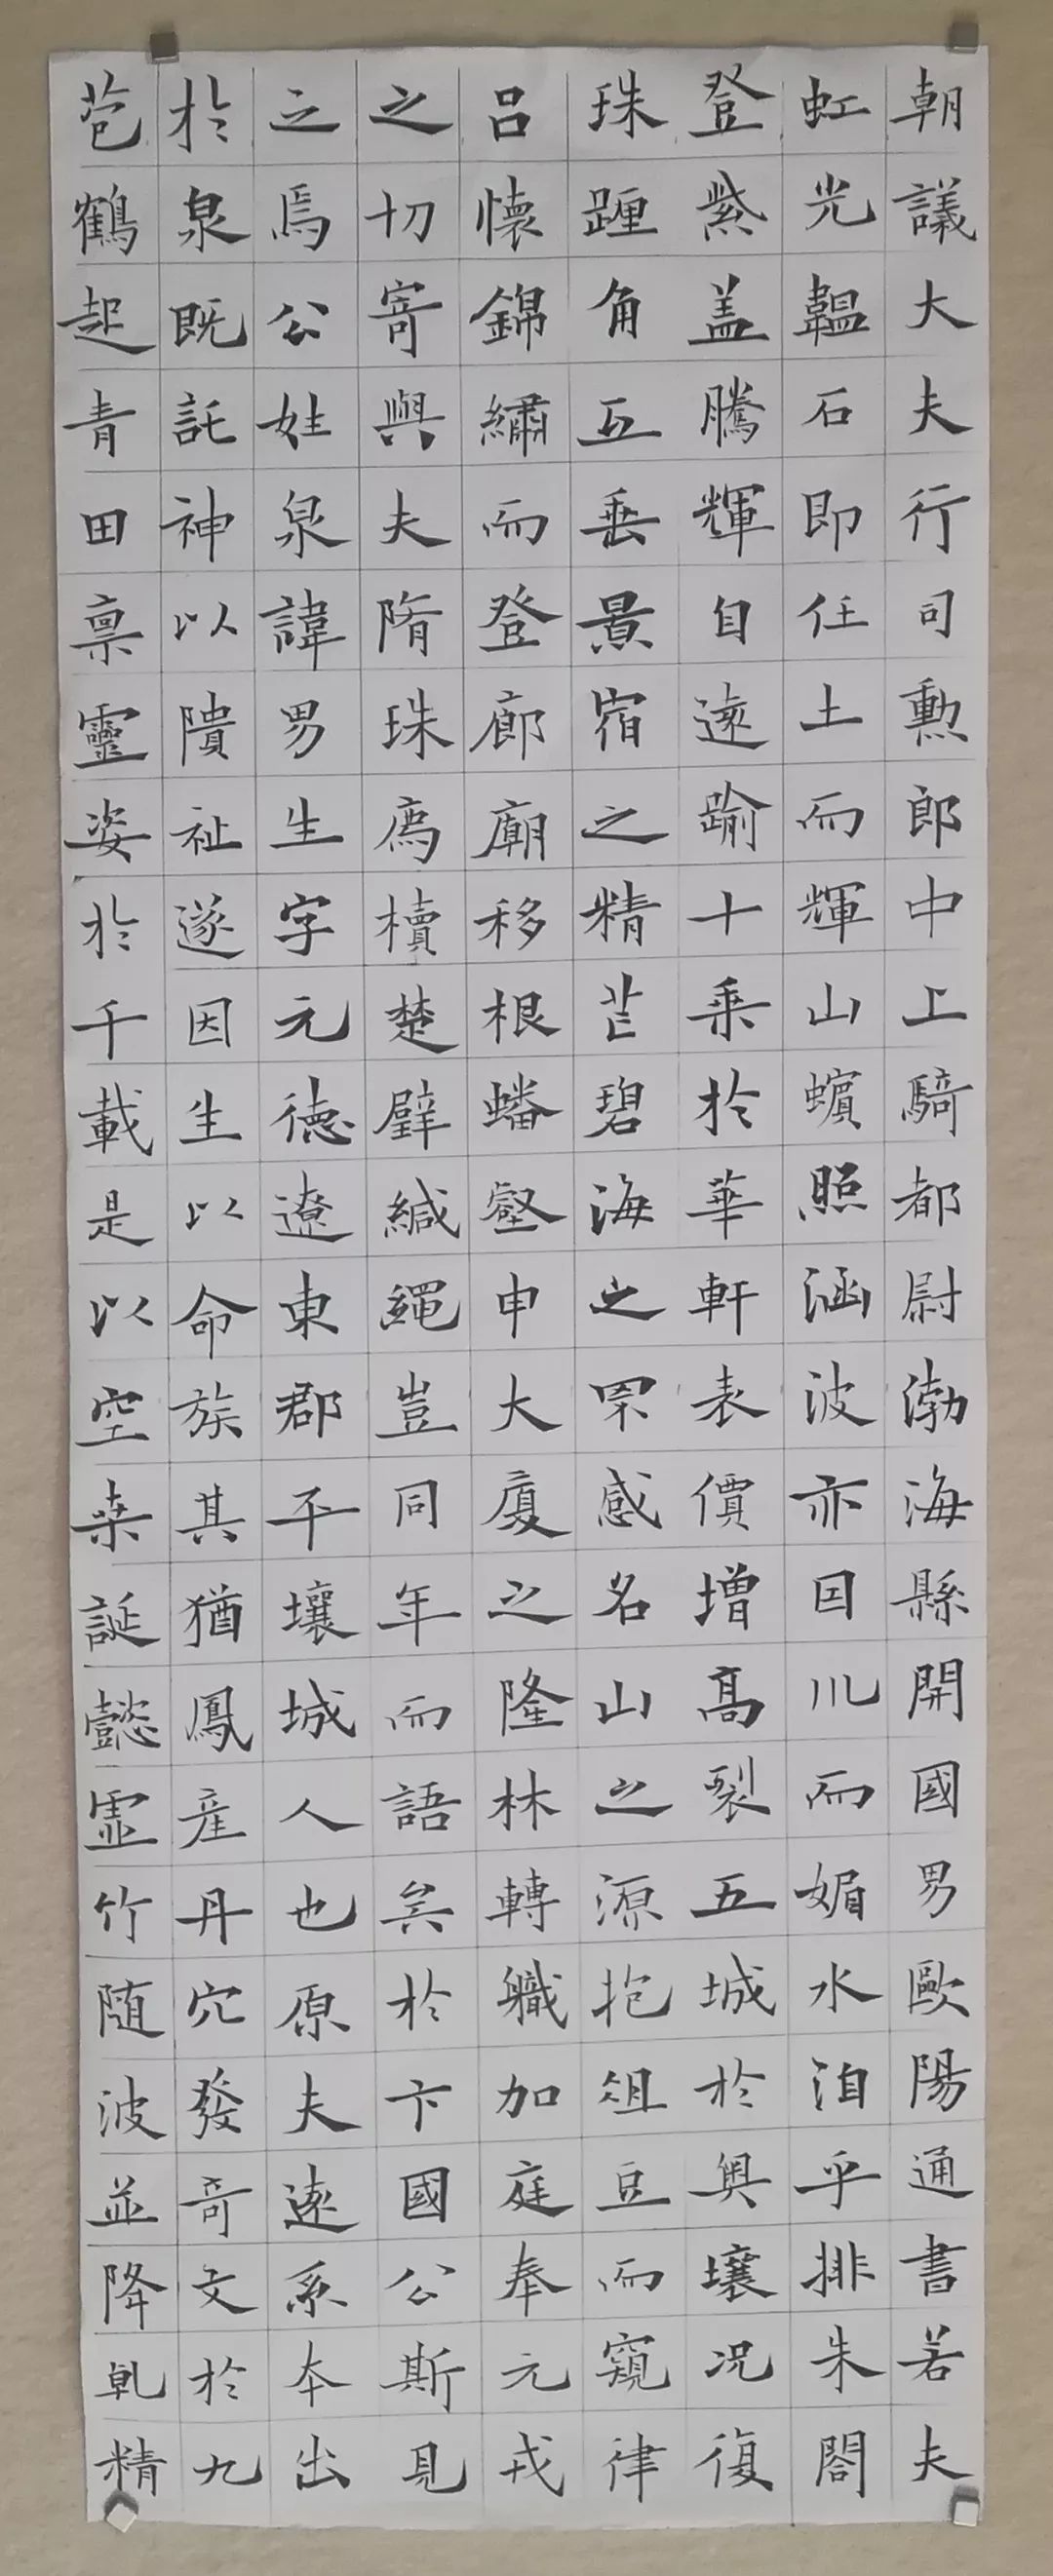 朝議大夫行司勳郎中上騎都尉渤海縣開國男歐陽通書若夫
虹光韞石即任土而輝山蠙照涵波亦囙川而媚水洎乎排朱閤
登紫盖騰輝自遠踰十乗於華軒表價增高裂五城於奥壤况復
珠躔角互垂景宿之精芒碧海之罘感名山之源抱俎豆而窺律
吕懷錦繡而登廊廟移根蟠壑申大厦之隆林轉職加庭奉元戎
之切寄與夫隋珠薦櫝楚璧緘繩豈同年而語矣於卞國公斯見
之焉公姓泉諱男生字元徳遼東郡平壤城人也原夫遠系本出
於泉既託神以隤祉遂因生以命族其猶鳳產丹穴發奇文於九
苞鶴起青田禀靈姿於千載是以空桒誕懿虚竹随波並降乹精